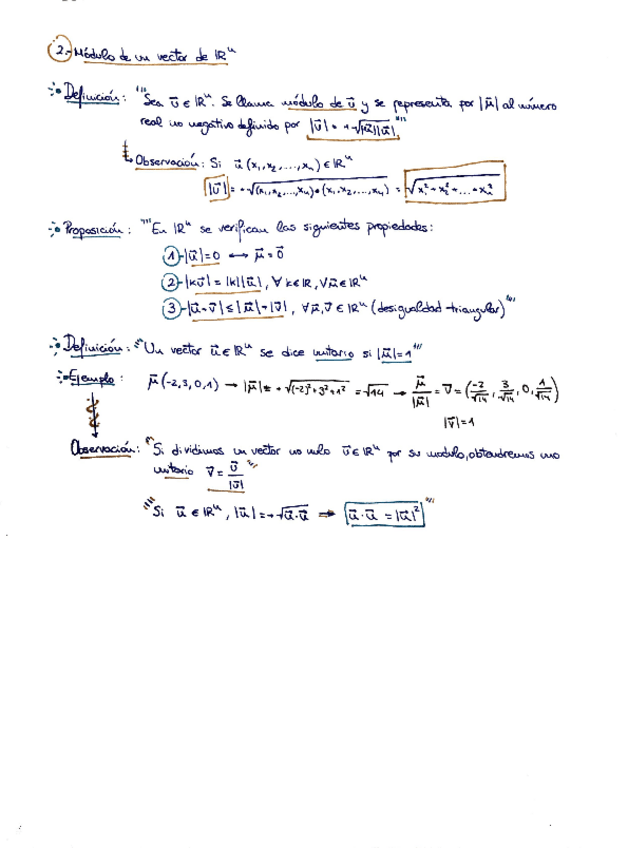 2.- Módulo de un vector de ℝⁿ
Definición: "Sea v⃗ ∈ ℝⁿ. Se llama módulo de v⃗ y se representa por |μ⃗| al número
real no negativo definido por |v⃗| = +√|u⃗||u⃗|"
Observación: Si u⃗(x₁,x₂,...,xₙ) ∈ ℝⁿ
|v⃗| = +√(x₁,x₂,...,xₙ)•(x₁,x₂,...,xₙ) = √x₁²+x₂²+...+xₙ²
Proposición: "En ℝⁿ se verifican las siguientes propiedades:
1-|u⃗|=0 ⟷ μ⃗=0⃗
2-|ku⃗|=|k||u⃗|, ∀k∈ℝ, ∀μ⃗∈ℝⁿ
3-|u⃗+v⃗|≤|μ⃗|+|v⃗|, ∀μ⃗,v⃗∈ℝⁿ (desigualdad triangular)"
Definición: "Un vector u⃗∈ℝⁿ se dice unitario si |μ⃗|=1"
Ejemplo: μ⃗(-2,3,0,1) → |μ⃗|= +√(-2)²+3²+1² = √14 → μ⃗/|μ⃗| = v⃗ = (-2/√14, 3/√14, 0, 1/√14)
|v⃗|=1
Observación: "Si dividimos un vector no nulo v⃗∈ℝⁿ por su modulo, obtendremos uno
unitario v⃗ = v⃗/|v⃗|"
"Si u⃗∈ℝⁿ, |u⃗|=+√u⃗·u⃗ ⇒ u⃗·u⃗=|u⃗|²"